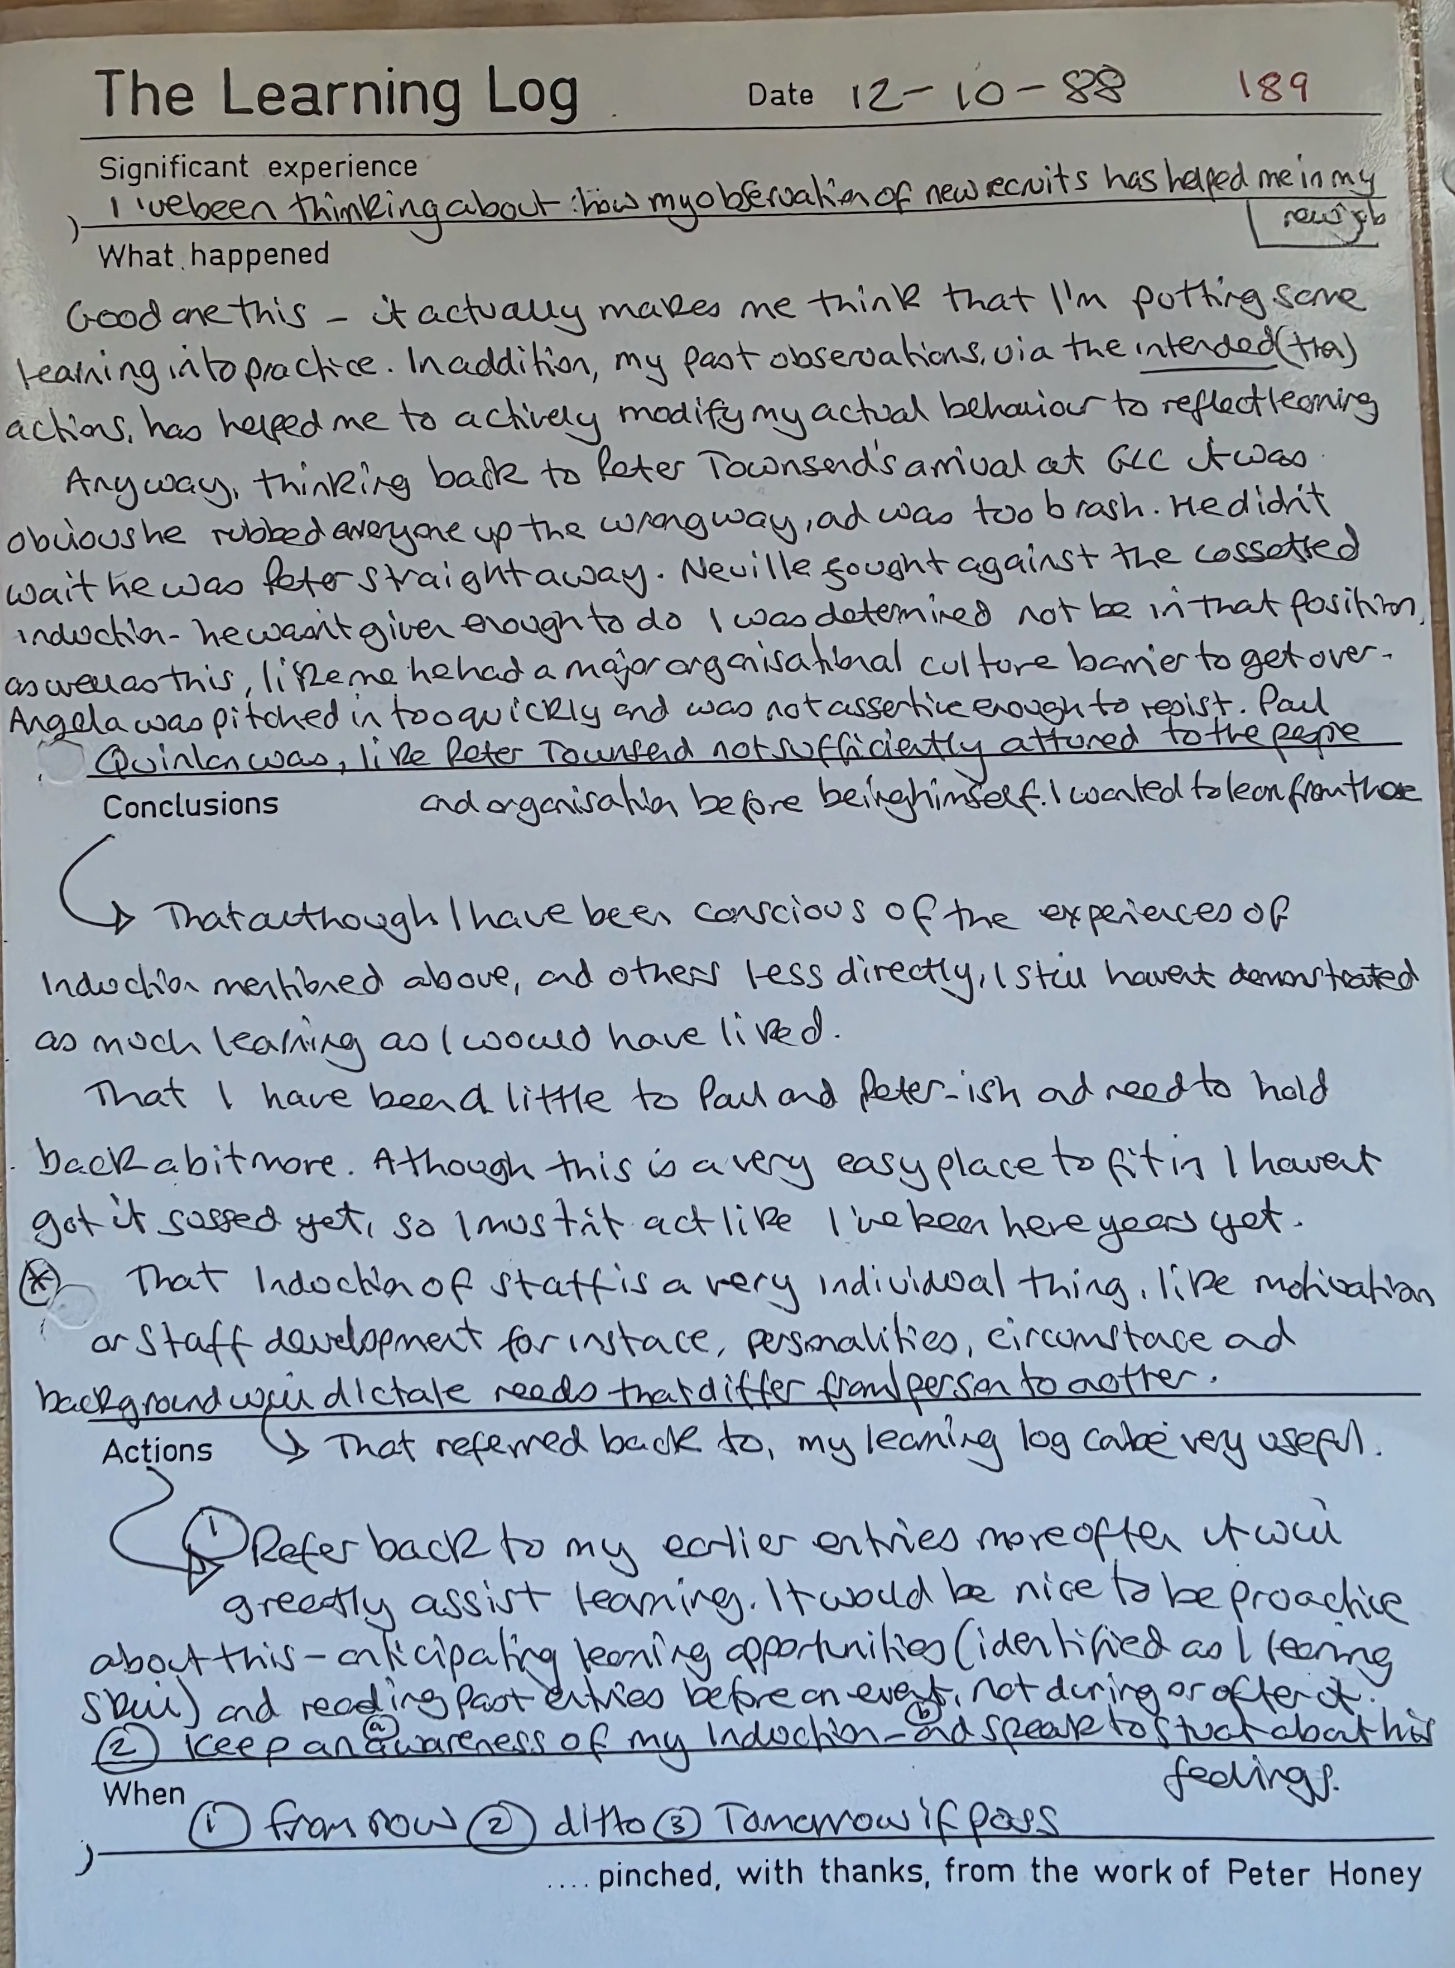 The Learning Log Date 12-10-88 189
Significant experience
I've been thinking about how my observation of new recruits has helped me in my
new job
What happened
Good one this - it actually makes me think that I'm putting some
learning into practice. In addition, my past observations, via the intended
actions, has helped me to actively modify my actual behaviour to reflect learning
Anyway, thinking back to Peter Townsend's arrival at GLC it was
obvious he rubbed everyone up the wrong way, ad was too brash. He didn't
wait he was Peter straight away. Neville fought against the cossetted
induction - he wasn't given enough to do I was determined not be in that position,
as well as this, like me he had a major organisational culture barrier to get over.
Angela was pitched in too quickly and was not assertive enough to resist. Paul
Quinlan was, like Peter Townsend not sufficiently attuned to the people
and organisation before being himself. I wanted to learn from those
Conclusions
That although I have been conscious of the experiences of
Induction mentioned above, and others less directly, I still havent demonstrated
as much learning as I would have liked.
That I have been a little to Paul and Peter-ish ad need to hold
back a bit more. Athough this is a very easy place to fit in I havent
got it sussed yet, so I mustn't act like I've been here years yet.
* That Induction of staff is a very individual thing, like motivation
or staff development for instace, personalities, circumstace ad
background will dictate needs that differ from person to another.
Actions That referred back to, my learning log can be very useful.
1 Refer back to my earlier entries more often it will
greatly assist learning. It would be nice to be proactive
about this - anticipating learning opportunities (identified as a learning
skill) and reading past entries before an event, not during or after it.
2 Keep an (a) awareness of my Induction - (b) and speak to Stuart about his
feelings.
When
1 from now 2 ditto 3 Tomorrow if poss
.... pinched, with thanks, from the work of Peter Honey